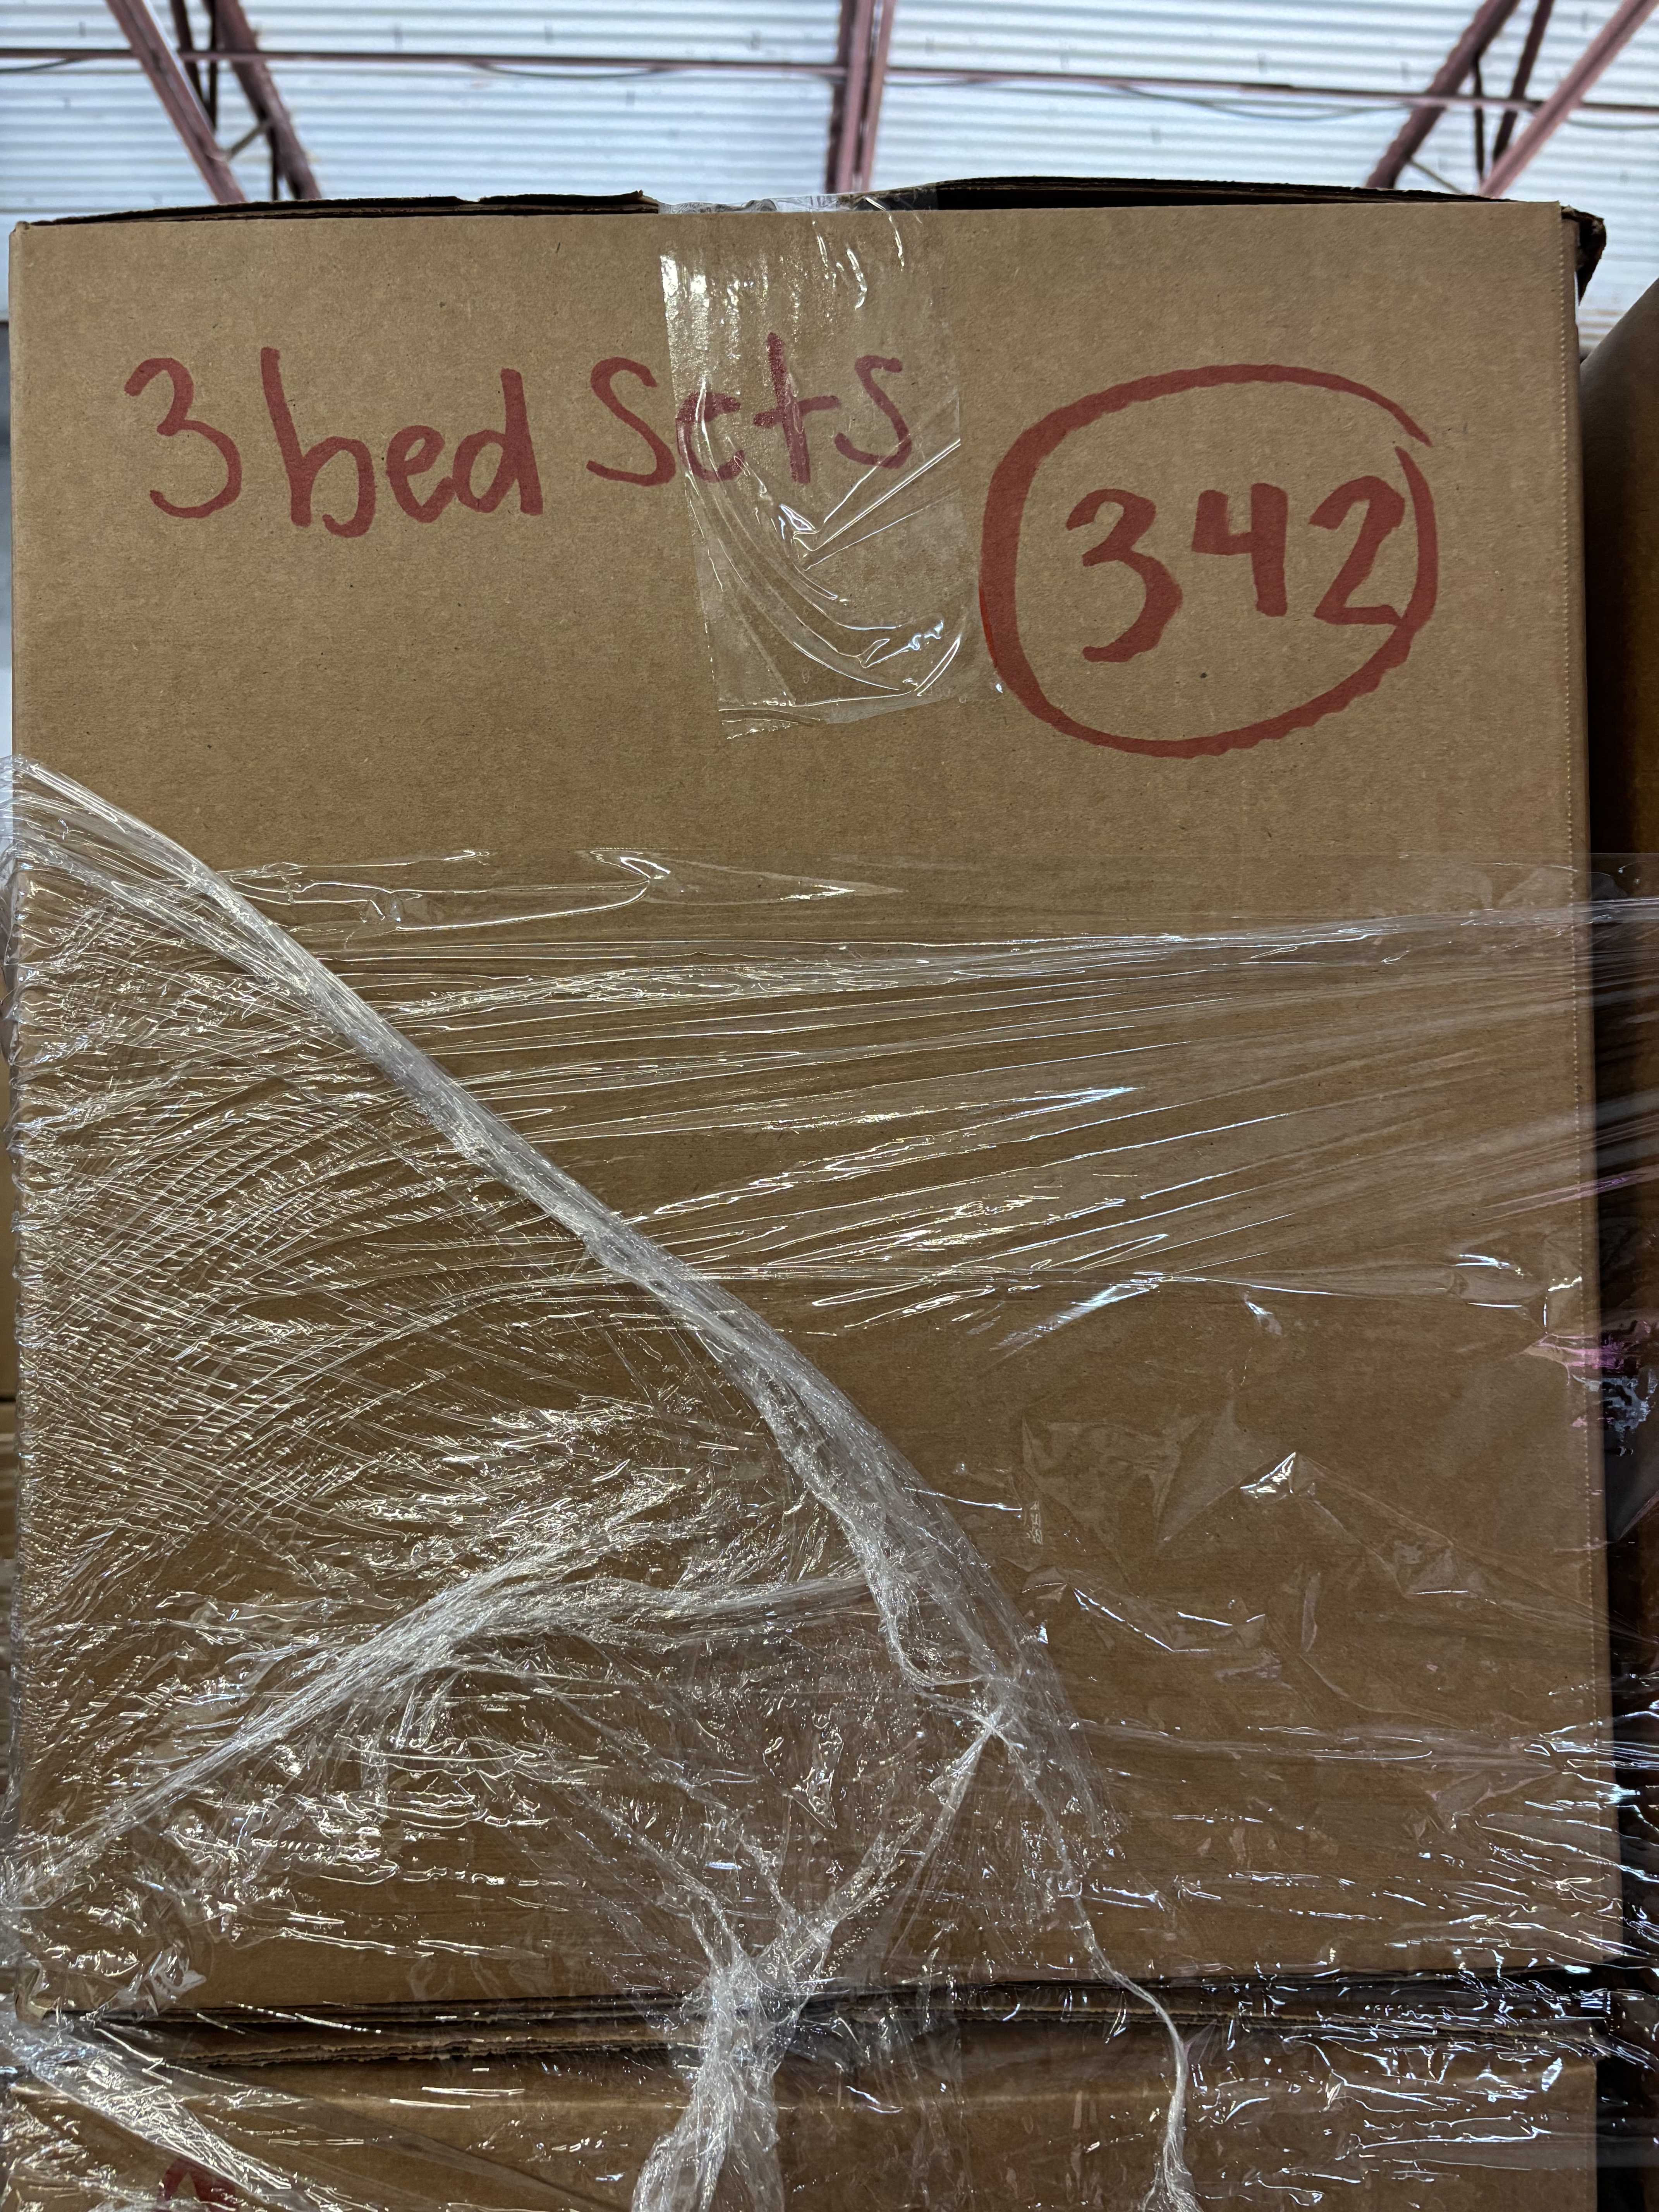 3 bed Sets
342